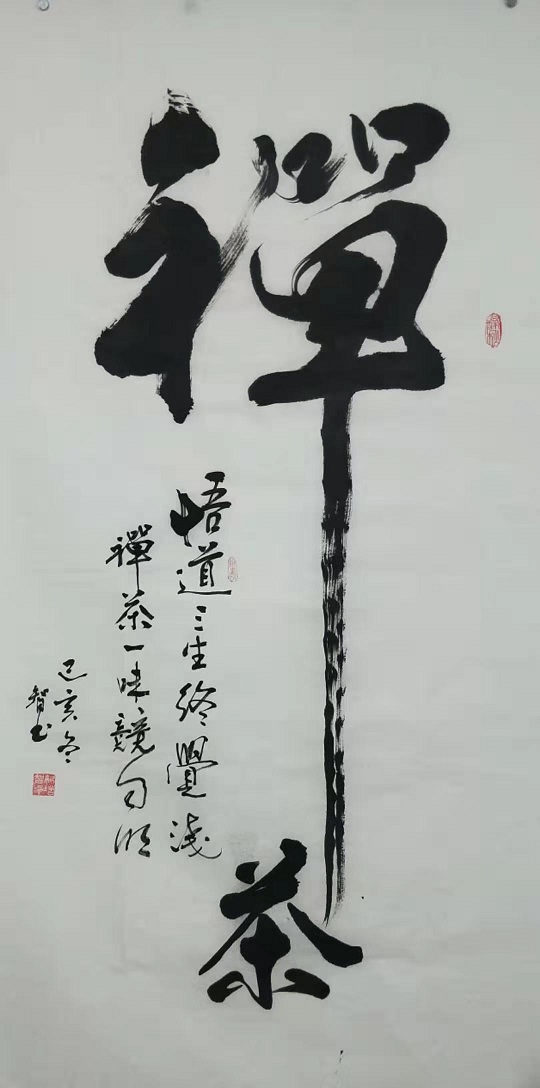 禪茶
悟道三生終覺淺
禪茶一味競自
己亥冬
智書